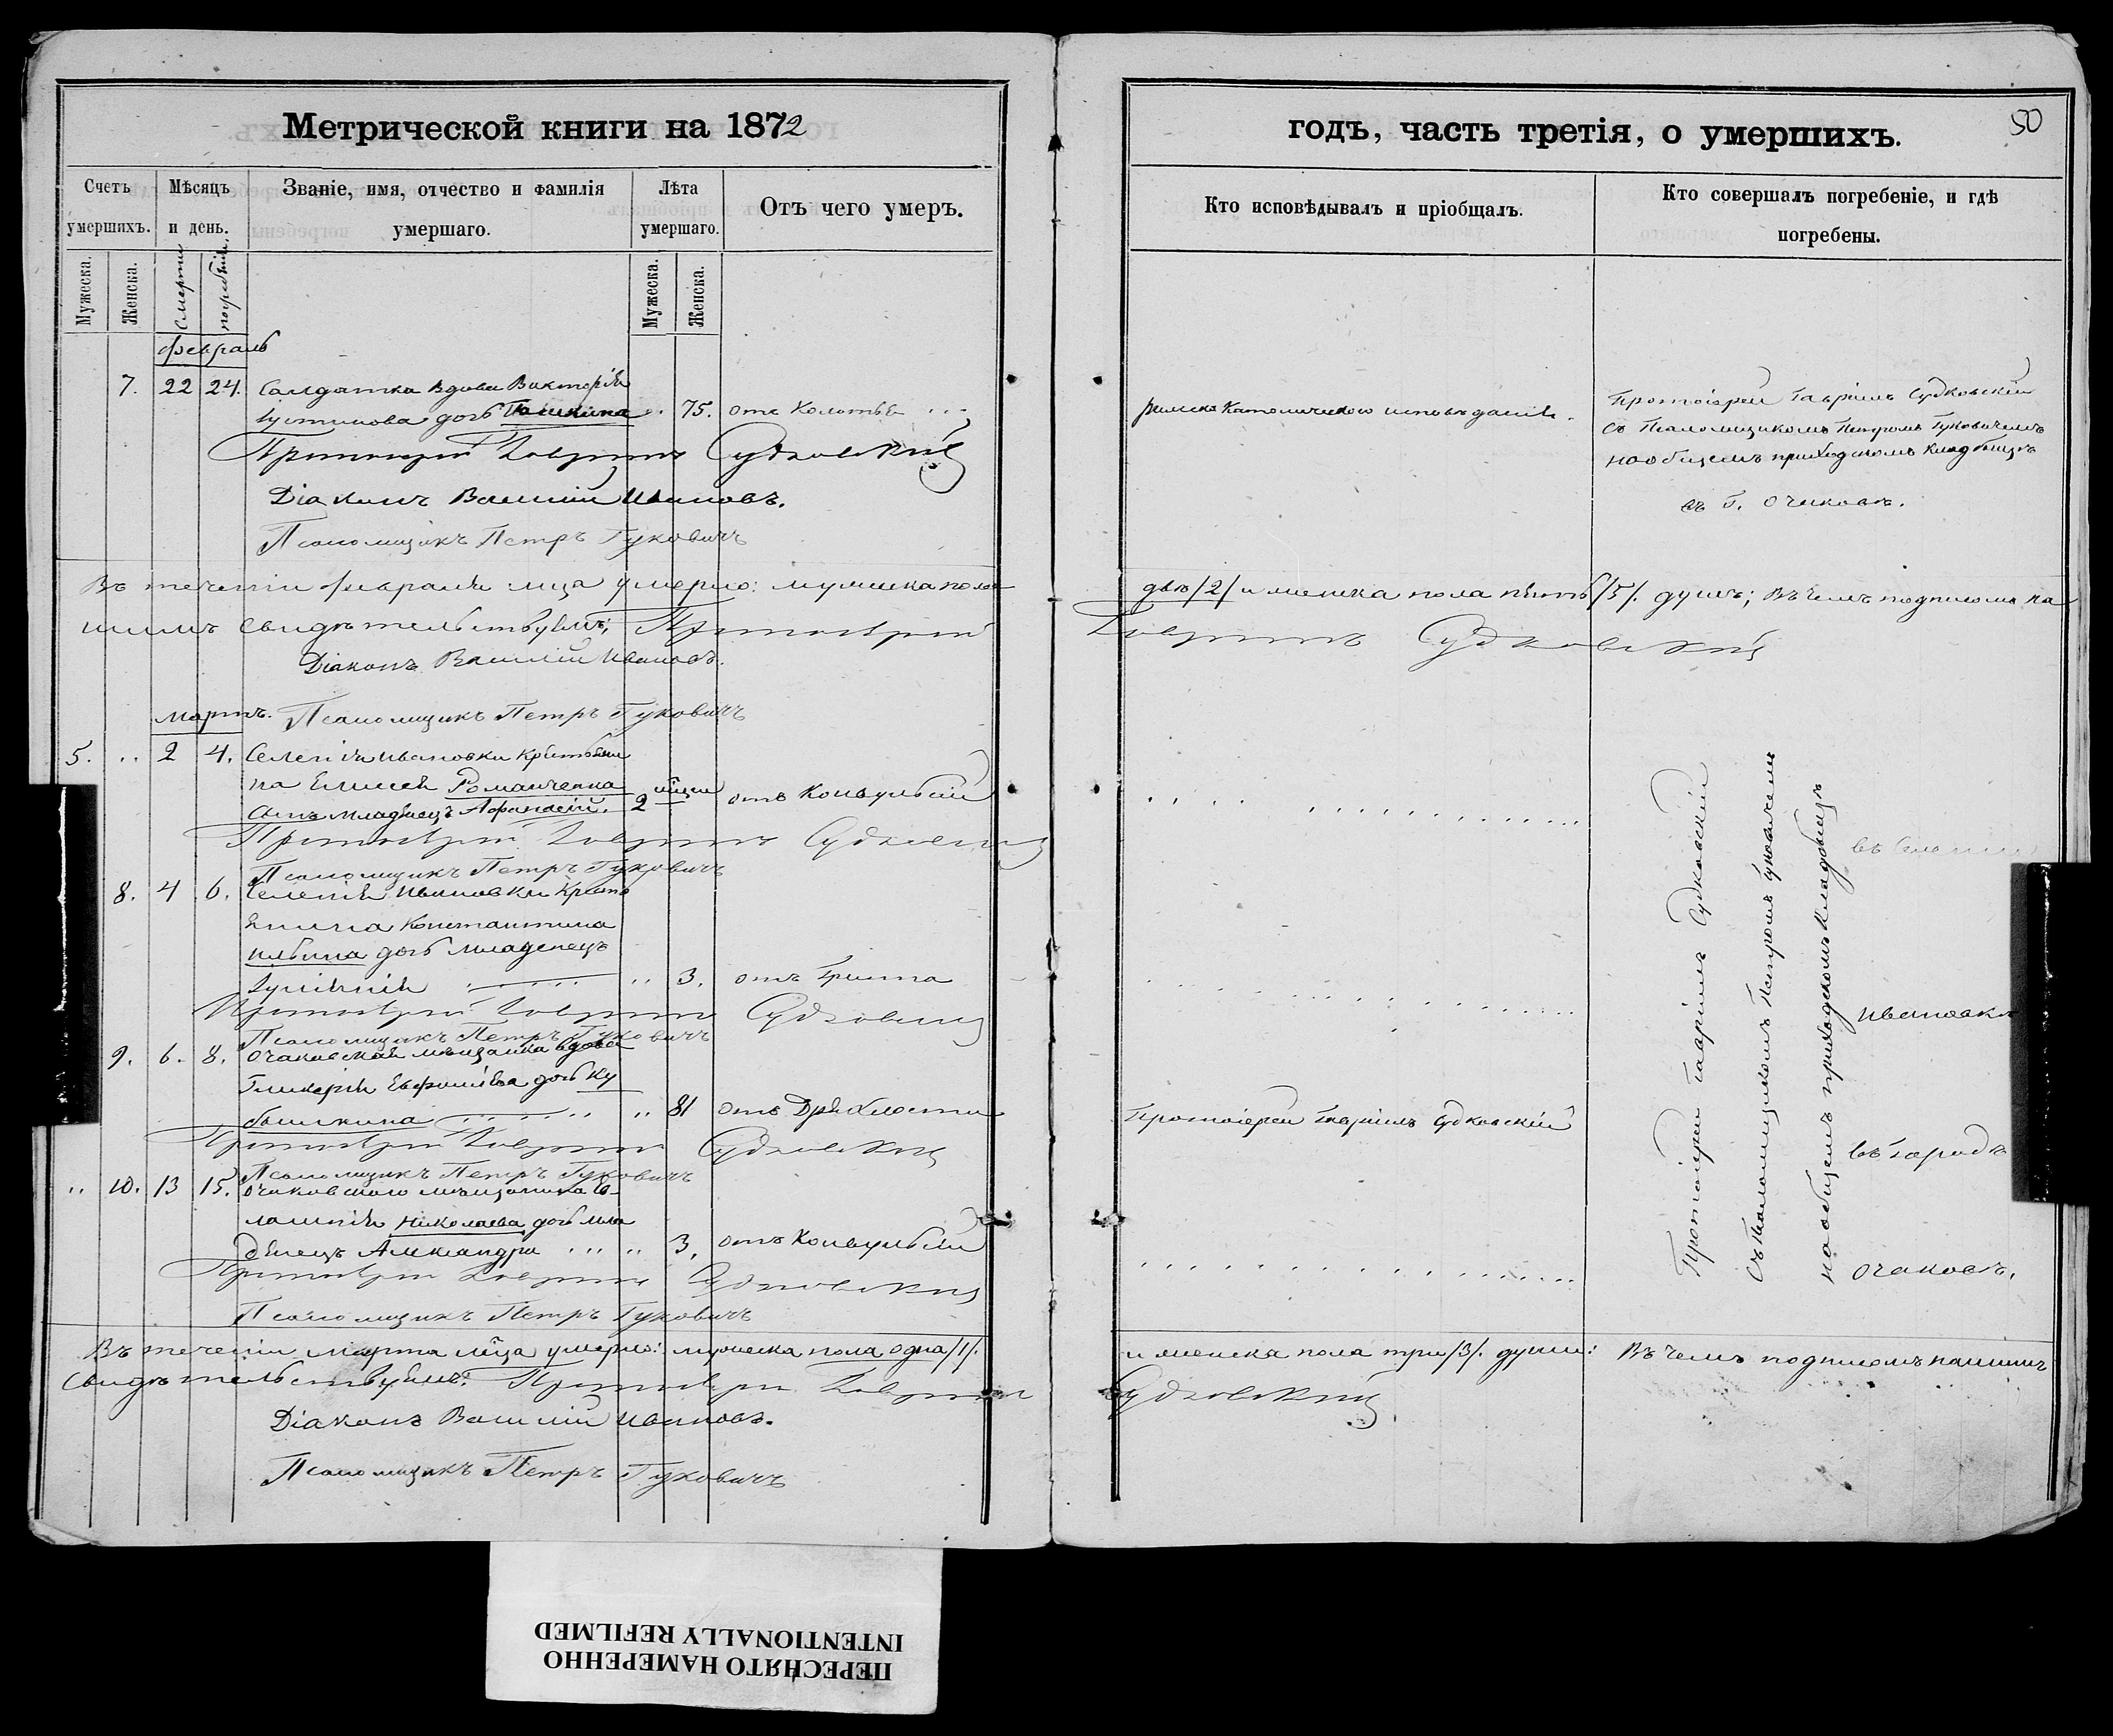 Метрической книги на 1872
годъ, часть третія, о умершихъ.
50
Счетъ умершихъ.
Мѣсяцъ и день.
Званіе, имя, отчество и фамилія умершаго.
Лѣта умершаго.
Отъ чего умеръ.
Кто исповѣдывалъ и пріобщалъ.
Кто совершалъ погребеніе, и гдѣ погребены.
Мужеска.
Женска.
Смерти
погребенія.
Мужеска.
Женска.
февраль
7. 22 24. Солдатка вдова Викторія
Іустинова дочь 75. отъ
Римско Католическаго исповѣданія.
Протоіерей Гавріилъ Судковскій
съ Псаломщикомъ Петромъ Гуковичемъ
на общемъ приходскомъ кладбищѣ
въ г. Очаковѣ.
Протоіерей Гавріилъ Судковскій
Діаконъ Василій Ивановъ.
Псаломщикъ Петръ Гуковичъ
Въ теченіи февраля мца умерло: мужеска пола
двѣ /2/ и женска пола пять /5/. душъ; въ чемъ подписомъ на
шимъ свидѣтельствуемъ; Протоіерей
Гавріилъ Судковскій
Діаконъ Василій Ивановъ.
Псаломщикъ Петръ Гуковичъ
мартъ.
5. .. 2 4. Селенія Ивановки
на Елисея Романченка
сынъ младенецъ Афанасій. 2 отъ Конвульсій
Протоіерей Гавріилъ Судковскій
Псаломщикъ Петръ Гуковичъ
8. 4 6. Селенія Ивановки Крестъ
янина Константина
дочь младенецъ
.. 3. отъ Гриппа
Протоіерей Гавріилъ Судковскій
Псаломщикъ Петръ Гуковичъ
9. 6. 8. Очаковская мѣщанка вдова
Гликерія дочь Ку
.. 81 отъ Дряхлости
Протоіерей Гавріилъ Судковскій
Протоіерей Гавріилъ Судковскій
Псаломщикъ Петръ Гуковичъ
.. 10. 13 15. Очаковскаго мѣщанина
Николаева дочь мла
денецъ Александра .. 3. отъ Конвульсій
Протоіерей Гавріилъ Судковскій
Псаломщикъ Петръ Гуковичъ
Протоіерей Гавріилъ Судковскій
съ Псаломщикомъ Петромъ Гуковичемъ
на общемъ приходскомъ кладбищѣ
въ Селеніи
Ивановкѣ
въ городѣ
Очаковѣ.
Въ теченіи марта мца умерло: мужеска пола одна /1/.
и женска пола три /3/. души: Въ чемъ подписомъ нашимъ
свидѣтельствуемъ: Протоіерей Гавріилъ
Судковскій
Діаконъ Василій Ивановъ.
Псаломщикъ Петръ Гуковичъ
ПЕРЕСНЯТО НАМЕРЕННО
INTENTIONALLY REFILMED